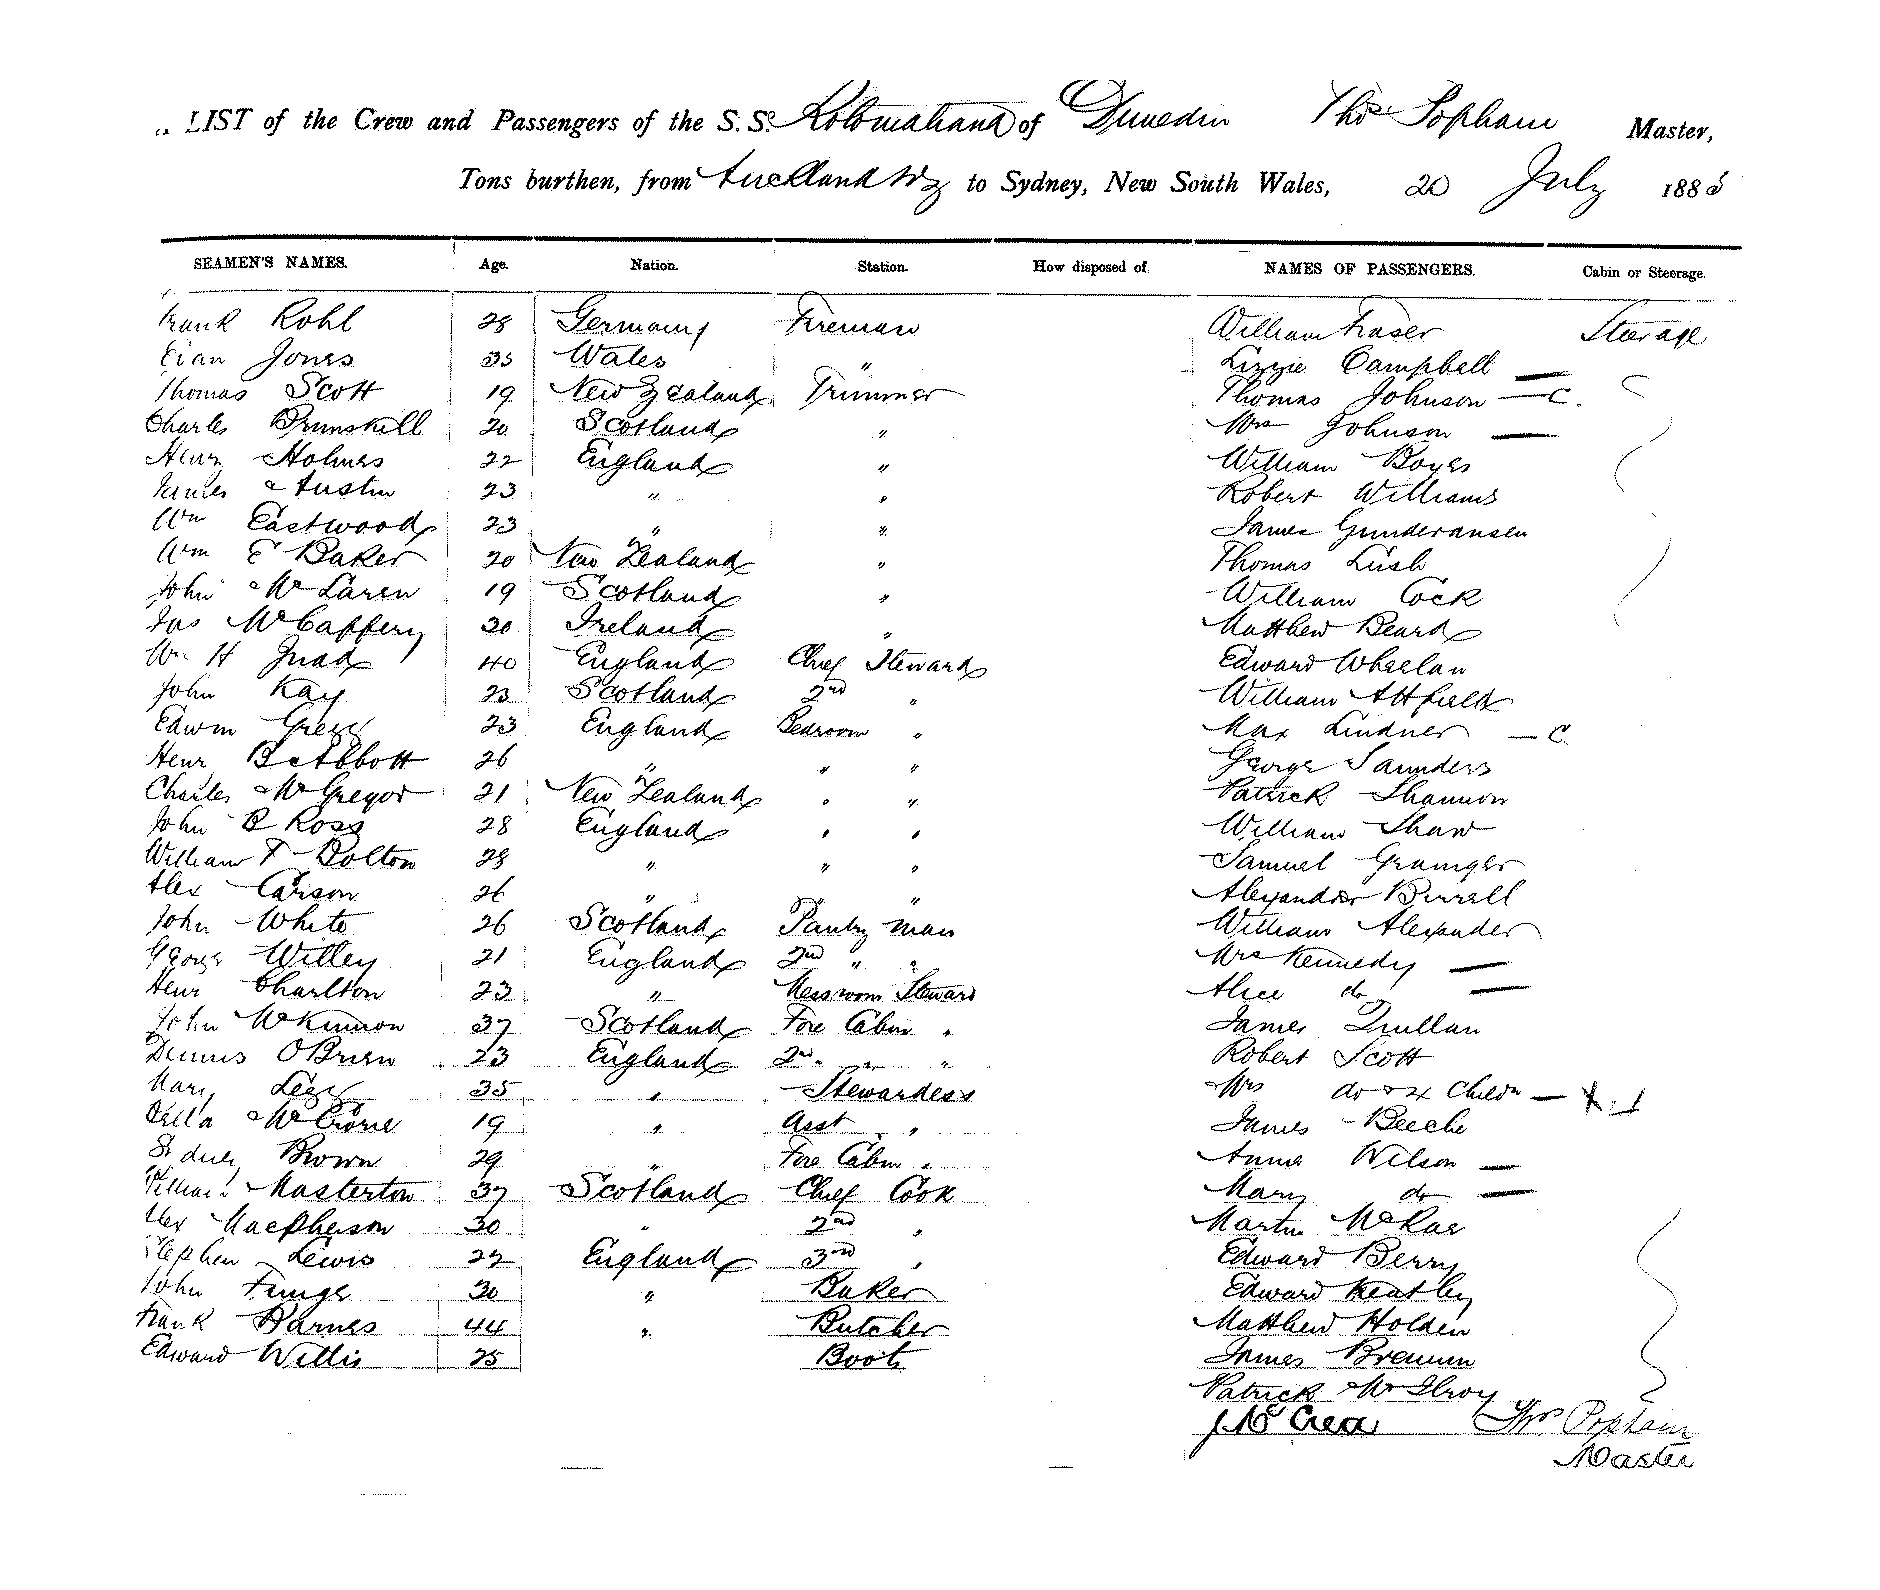 LIST of the Crew and Passengers of the S.S. Rotomahana of Dunedin Thos Popham Master,
Tons burthen, from Auckland NZ to Sydney, New South Wales, 20 July 188
SEAMEN'S NAMES. Age. Nation. Station. How disposed of. NAMES OF PASSENGERS. Cabin or Steerage.
Frank Rohl 28 Germany Fireman William Fraser Steerage
Evan Jones 35 Wales " Lizzie Campbell —
Thomas Scott 19 New Zealand Trimmer Thomas Johnson — C.
Charles Brunskill 20 Scotland " Mrs Johnson —
Henry Holmes 22 England " William Boyes
James Austin 23 " " Robert Williams
Wm Eastwood 23 " " James Gunderansen
Wm E Baker 20 New Zealand " Thomas Lush
John McLaren 19 Scotland " William Cock
Jas McCaffery 30 Ireland " Matthew Beard
Wm H 40 England Chief Steward Edward Whelan
John Kay 23 Scotland 2nd " William Attfield
Edwin 23 England Bedroom " Max Lindner — C
Henr B Abbott 26 " " " George Saunders
Charles McGregor 21 New Zealand " " Patrick Shannon
John R Ross 28 England " " William Shaw
William T Bolton 28 " " " Samuel Grainger
Alex Carson 26 " " " Alexander Birrell
John White 26 Scotland Pantry man William Alexander
George Willey 21 England 2nd " " Mrs Kennedy —
Henr Charlton 23 " Messroom Steward Alice do —
John McKinnon 37 Scotland Fore Cabin " James Quillan
Dennis O'Brien 23 England 2nd " " Robert Scott
Mary 35 " Stewardess Mrs do & 4 Childn —
Bella McCrone 19 " Asst " James Beeche
Sydney Brown 29 " Fore Cabin " Annie Wilson —
William Masterton 37 Scotland Chief Cook Mary do —
Alex Macpherson 30 " 2nd " Martin McRae
Stephen Lewis 22 England 3rd " Edward Berry
John 30 " Baker Edward Keatley
Frank Barnes 44 " Butcher Matthew Holden
Edward Willis 25 Boots James Brennan
Patrick McIlroy
J McCrea Thos Popham
Master